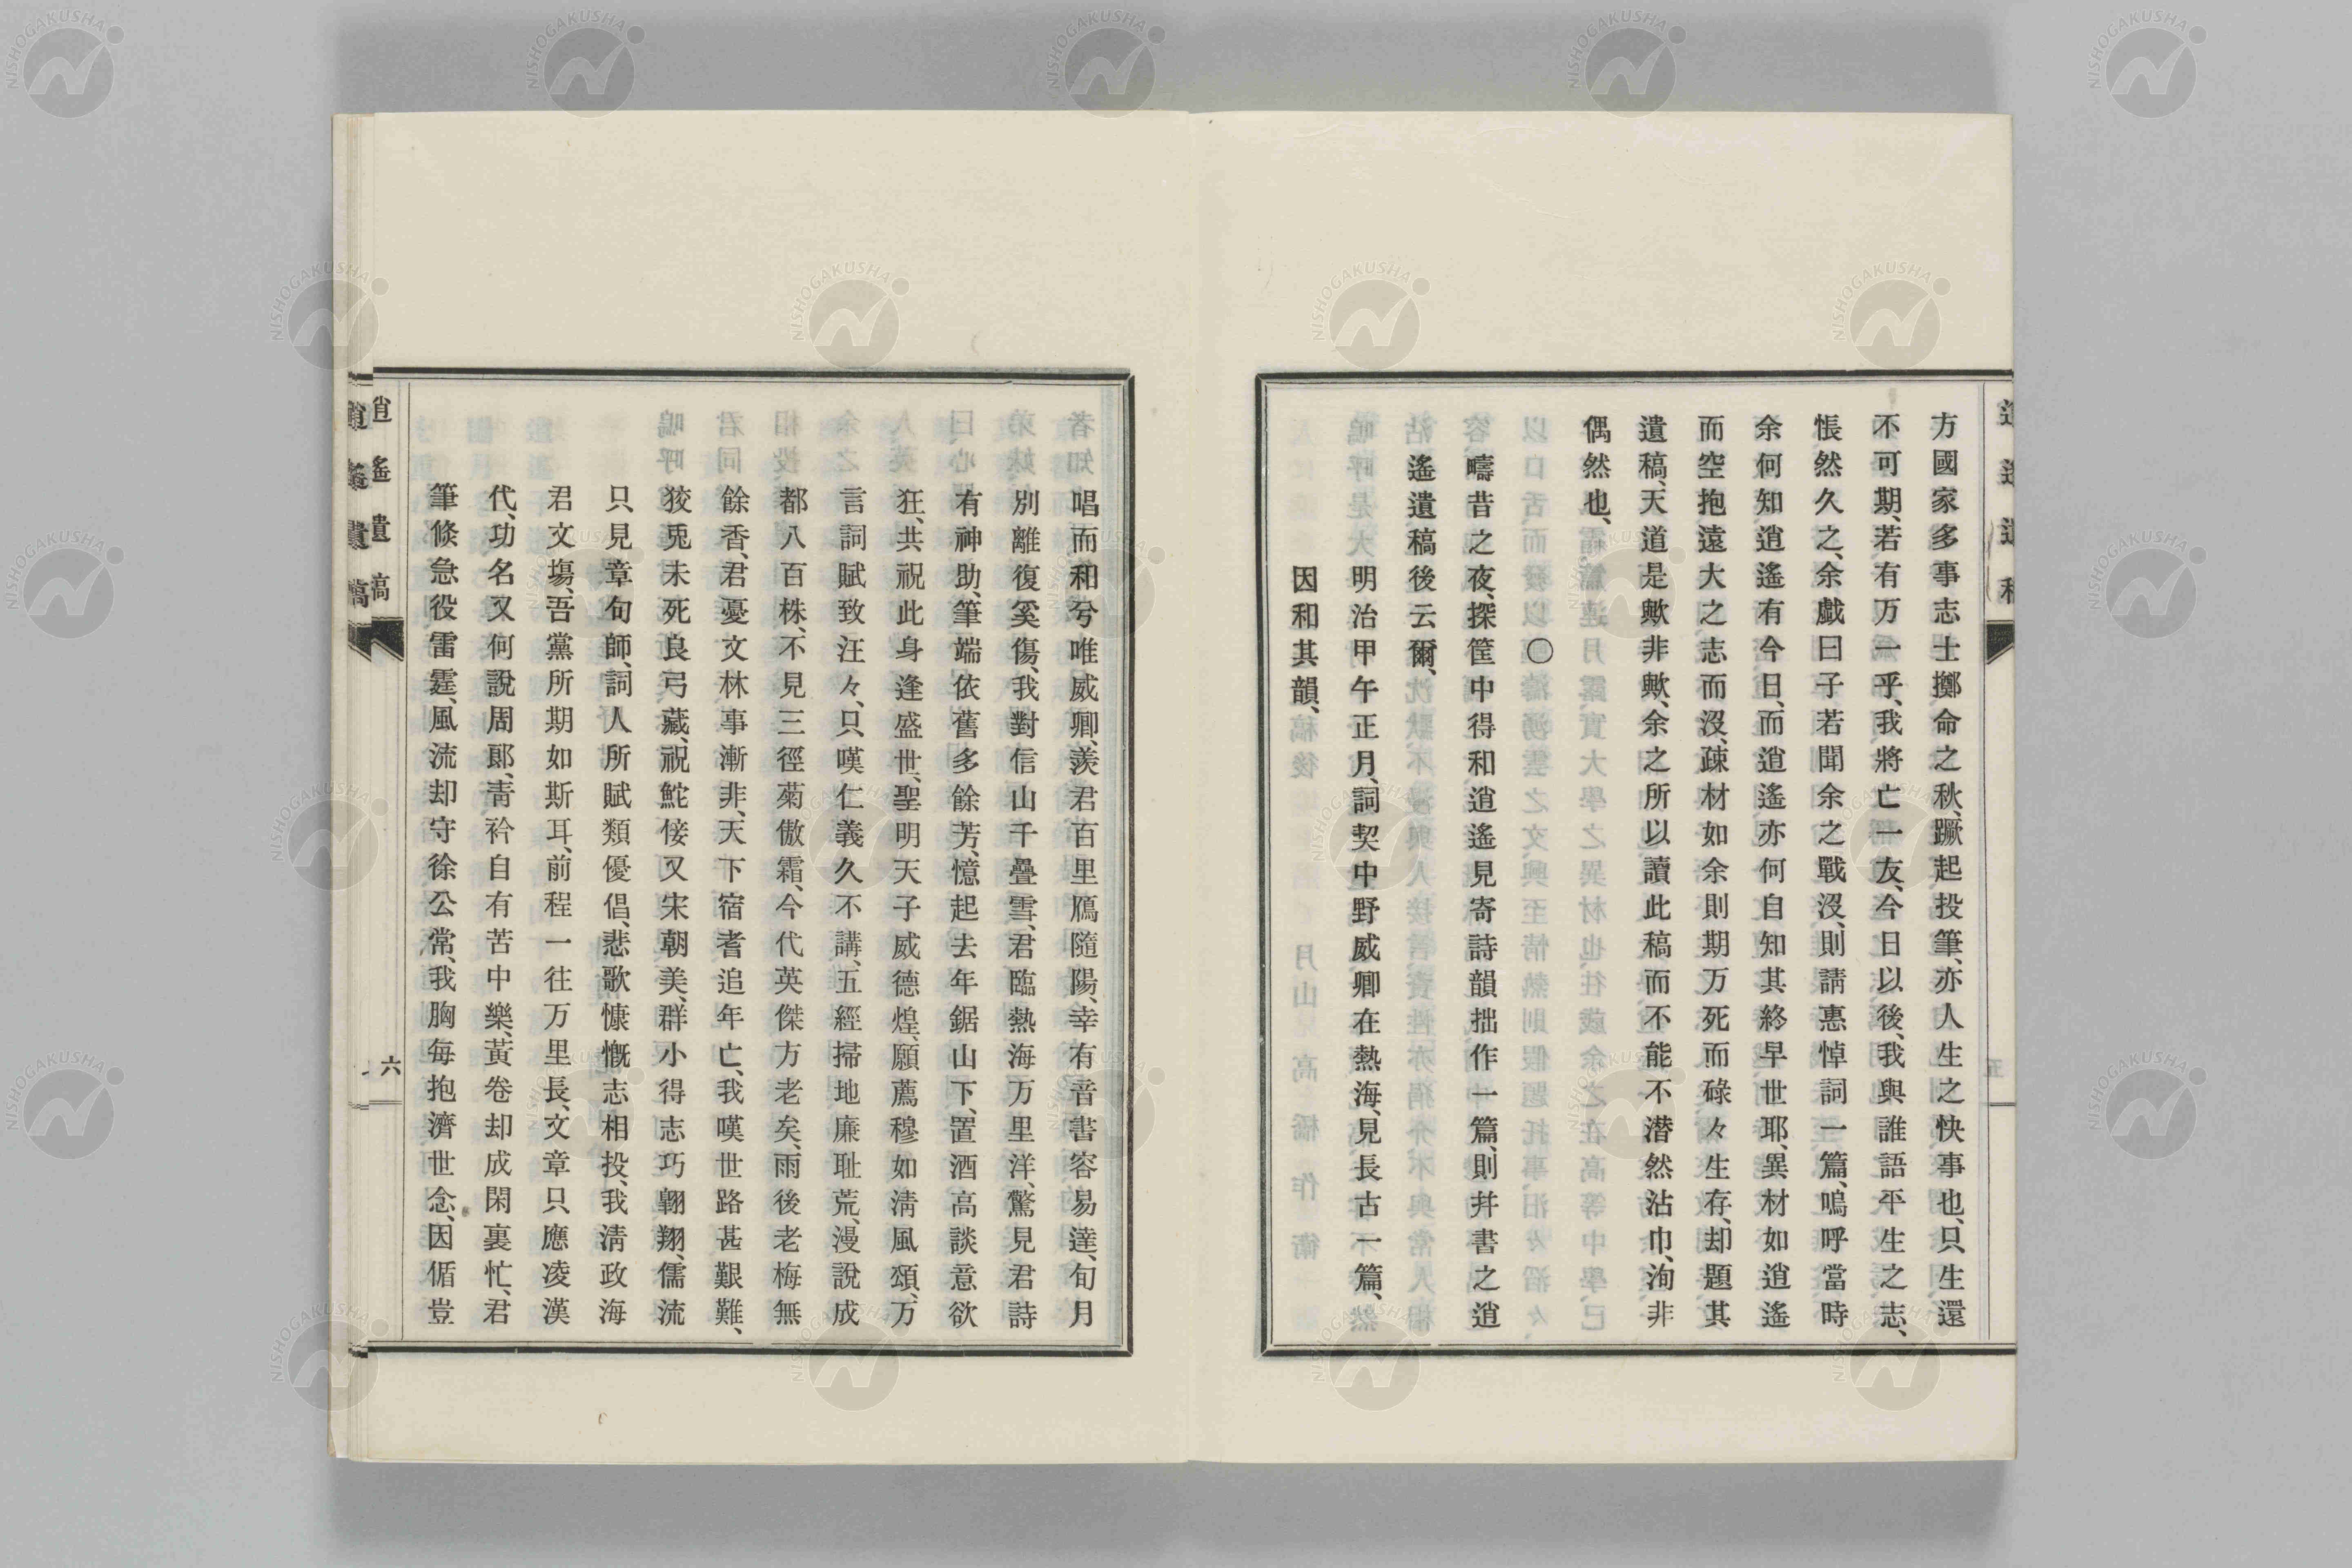 方國家多事志士擲命之秋、蹶起投筆、亦人生之快事也、只生還
不可期、若有万一乎、我將亡一友、今日以後、我與誰語平生之志、
悵然久之、余戲曰子若聞余之戰沒、則請惠悼詞一篇、嗚呼當時
余何知逍遙有今日、而逍遙亦何自知其終早世耶、異材如逍遙
而空抱遠大之志而沒、疎材如余則期万死而碌々生存、却題其
遺稿、天道是歟非歟、余之所以讀此稿而不能不潜然沾巾、洵非
偶然也、
〇
疇昔之夜、探筐中得和逍遙見寄詩韻拙作一篇、則并書之逍
遙遺稿後云爾、
明治甲午正月、詞契中野威卿在熱海、見長古一篇、
因和其韻、
五
唱而和兮唯威卿、羨君百里鴈隨陽、幸有音書容易達、旬月
別離復奚傷、我對信山千疊雪、君臨熱海万里洋、驚見君詩
有神助、筆端依舊多餘芳、憶起去年鋸山下、置酒高談意欲
狂、共祝此身逢盛世、聖明天子威德煌、願薦穆如淸風頌、万
言詞賦致汪々、只嘆仁義久不講、五經掃地廉耻荒、漫說成
都八百株、不見三徑菊傲霜、今代英傑方老矣、雨後老梅無
餘香、君憂文林事漸非、天下宿耆追年亡、我嘆世路甚艱難、
狡兎未死良弓藏、祝鮀佞又宋朝美、群小得志巧翺翔、儒流
只見章句師、詞人所賦類優倡、悲歌慷慨志相投、我淸政海
君文塲、吾黨所期如斯耳、前程一往万里長、文章只應凌漢
代、功名又何說周郞、靑衿自有苦中樂、黃卷却成閑裏忙、君
筆倐急役雷霆、風流却守徐公常、我胸每抱濟世念、因循豈
逍遙遺稿
六